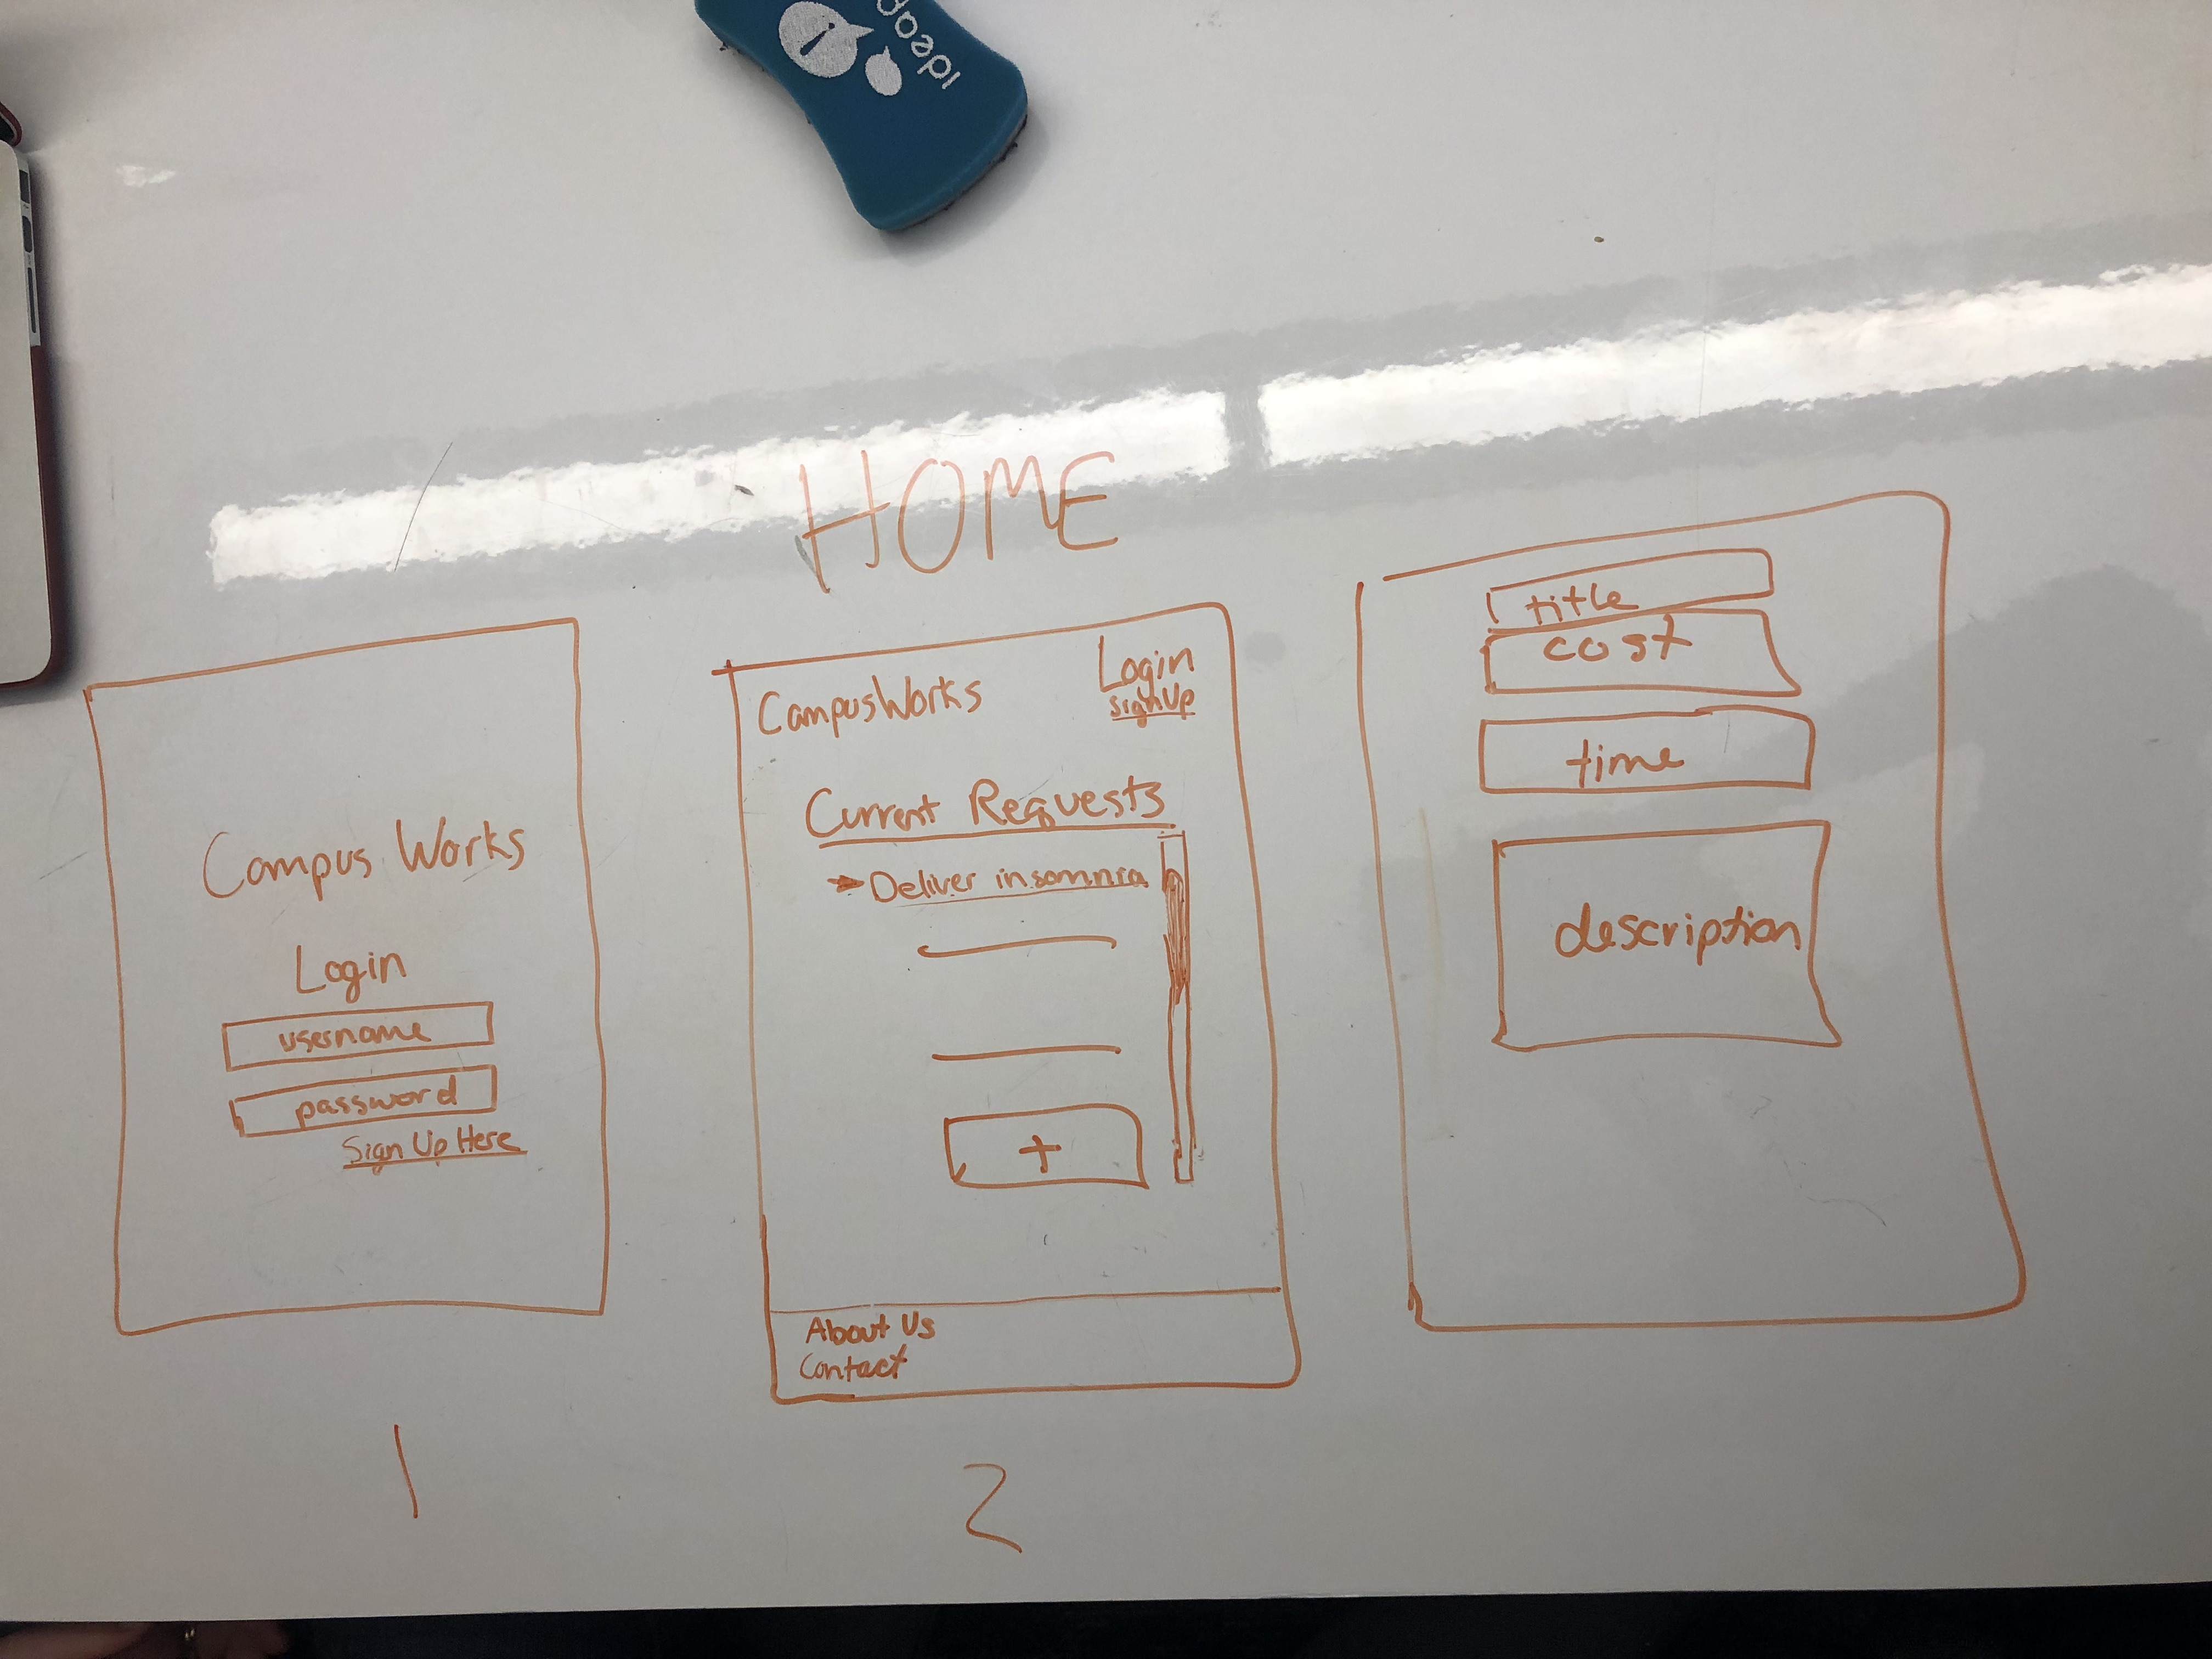 HOME
Campus Works
Login
username
password
Sign Up Here
1
CampusWorks
Login
Sign Up
Current Requests
Deliver insomnia
+
About Us
Contact
2
title
cost
time
description
ideap